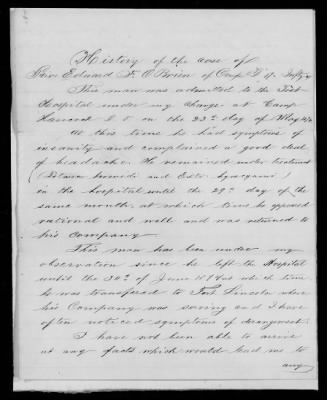 History of the case of
Priv Edward F. O'Brien of Comp "F" 17. Infty
This man was admitted to the Post
Hospital under my charge at Camp
Hancock D T on the 23d day of May 1874
At this time he had symptoms of
insanity and complained a good deal
of headache. He remained under treatment
(Potassa bromide and Extr. hyoscyami)
in the hospital until the 29th day of the
same month, at which time he appeared
rational and well and was returned to
his company.
This man has been under my
observation since he left the Hospital
until the 30th of June 1874 at which time
he was transfered to Fort Lincoln where
his Company was serving and I have
often noticed symptoms of derangement.
I have not been able to arrive
at any facts which would lead me to
any